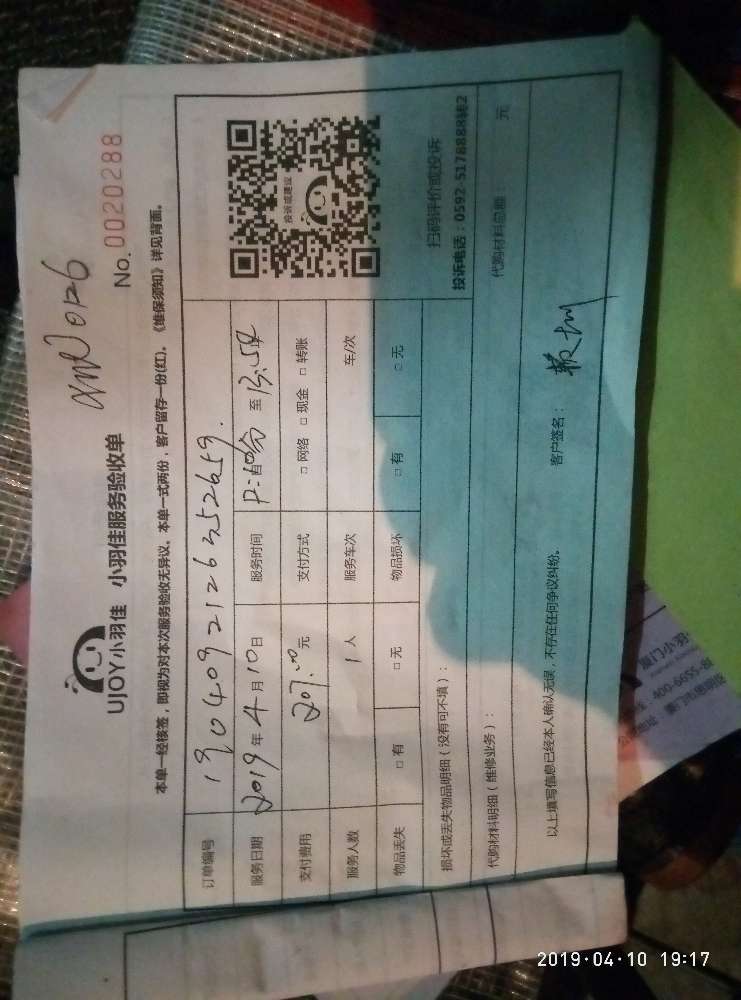 UJOY小羽佳 小羽佳服务验收单
No. 0020288
本单一经核签，即视为对本次服务验收无异议。本单一式两份，客户留存一份(红)。《维保须知》详见背面。
订单编号 190409212635 2659.
服务日期 2019年4月10日 服务时间 至 13:54
支付费用 207.00元 支付方式 □网络 □现金 □转账
服务人数 1人 服务车次 车/次
物品丢失 □有 □无 物品损坏 □有 □无
投诉或建议
扫码评价或投诉
投诉电话：0592-5178888转2
损坏或丢失物品明细（没有可不填）：
代购材料明细（维修业务）： 代购材料总额： 元
以上填写信息已经本人确认无误，不存在任何争议纠纷。 客户签名：
厦门小羽
400-6655-
2019·04·10 19:17